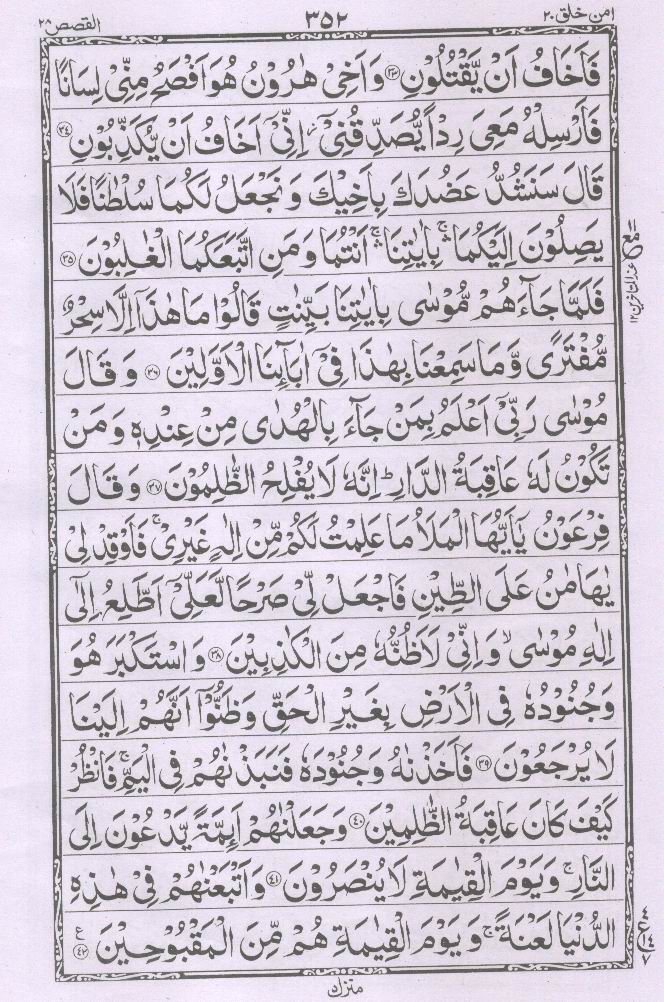 امن خلق ٢٠ ٣٥٢ القصص ٢٨
فَاَخَافُ اَنْ يَّقْتُلُوْنِ ﴿٣٣﴾ وَاَخِىْ هٰرُوْنُ هُوَ اَفْصَحُ مِنِّىْ لِسَانًا
فَاَرْسِلْهُ مَعِىَ رِدْاً يُّصَدِّقُنِىْۤ اِنِّىْۤ اَخَافُ اَنْ يُّكَذِّبُوْنِ ﴿٣٤﴾
قَالَ سَنَشُدُّ عَضُدَكَ بِاَخِيْكَ وَنَجْعَلُ لَكُمَا سُلْطٰنًا فَلَا
يَصِلُوْنَ اِلَيْكُمَا ۚۛ بِاٰيٰتِنَا ۚۛ اَنْتُمَا وَمَنِ اتَّبَعَكُمَا الْغٰلِبُوْنَ ﴿٣٥﴾
فَلَمَّا جَآءَهُمْ مُّوْسٰى بِاٰيٰتِنَا بَيِّنٰتٍ قَالُوْا مَا هٰذَاۤ اِلَّا سِحْرٌ
مُّفْتَرًى وَّمَا سَمِعْنَا بِهٰذَا فِىْۤ اٰبَآئِنَا الْاَوَّلِيْنَ ﴿٣٦﴾ وَقَالَ
مُوْسٰى رَبِّىْۤ اَعْلَمُ بِمَنْ جَآءَ بِالْهُدٰى مِنْ عِنْدِهٖ وَمَنْ
تَكُوْنُ لَهٗ عَاقِبَةُ الدَّارِ ؕ اِنَّهٗ لَا يُفْلِحُ الظّٰلِمُوْنَ ﴿٣٧﴾ وَقَالَ
فِرْعَوْنُ يٰۤاَيُّهَا الْمَلَاُ مَا عَلِمْتُ لَكُمْ مِّنْ اِلٰهٍ غَيْرِىْ ۚ فَاَوْقِدْ لِىْ
يٰهَامٰنُ عَلَى الطِّيْنِ فَاجْعَلْ لِّىْ صَرْحًا لَّعَلِّىْۤ اَطَّلِعُ اِلٰٓى
اِلٰهِ مُوْسٰى ۙ وَاِنِّىْ لَاَظُنُّهٗ مِنَ الْكٰذِبِيْنَ ﴿٣٨﴾ وَاسْتَكْبَرَ هُوَ
وَجُنُوْدُهٗ فِى الْاَرْضِ بِغَيْرِ الْحَقِّ وَظَنُّوْۤا اَنَّهُمْ اِلَيْنَا
لَا يُرْجَعُوْنَ ﴿٣٩﴾ فَاَخَذْنٰهُ وَجُنُوْدَهٗ فَنَبَذْنٰهُمْ فِى الْيَمِّ ۚ فَانْظُرْ
كَيْفَ كَانَ عَاقِبَةُ الظّٰلِمِيْنَ ﴿٤٠﴾ وَجَعَلْنٰهُمْ اَئِمَّةً يَّدْعُوْنَ اِلَى
النَّارِ ۚ وَيَوْمَ الْقِيٰمَةِ لَا يُنْصَرُوْنَ ﴿٤١﴾ وَاَتْبَعْنٰهُمْ فِىْ هٰذِهِ
الدُّنْيَا لَعْنَةً ۚ وَيَوْمَ الْقِيٰمَةِ هُمْ مِّنَ الْمَقْبُوْحِيْنَ ﴿٤٢﴾ ع
منزل